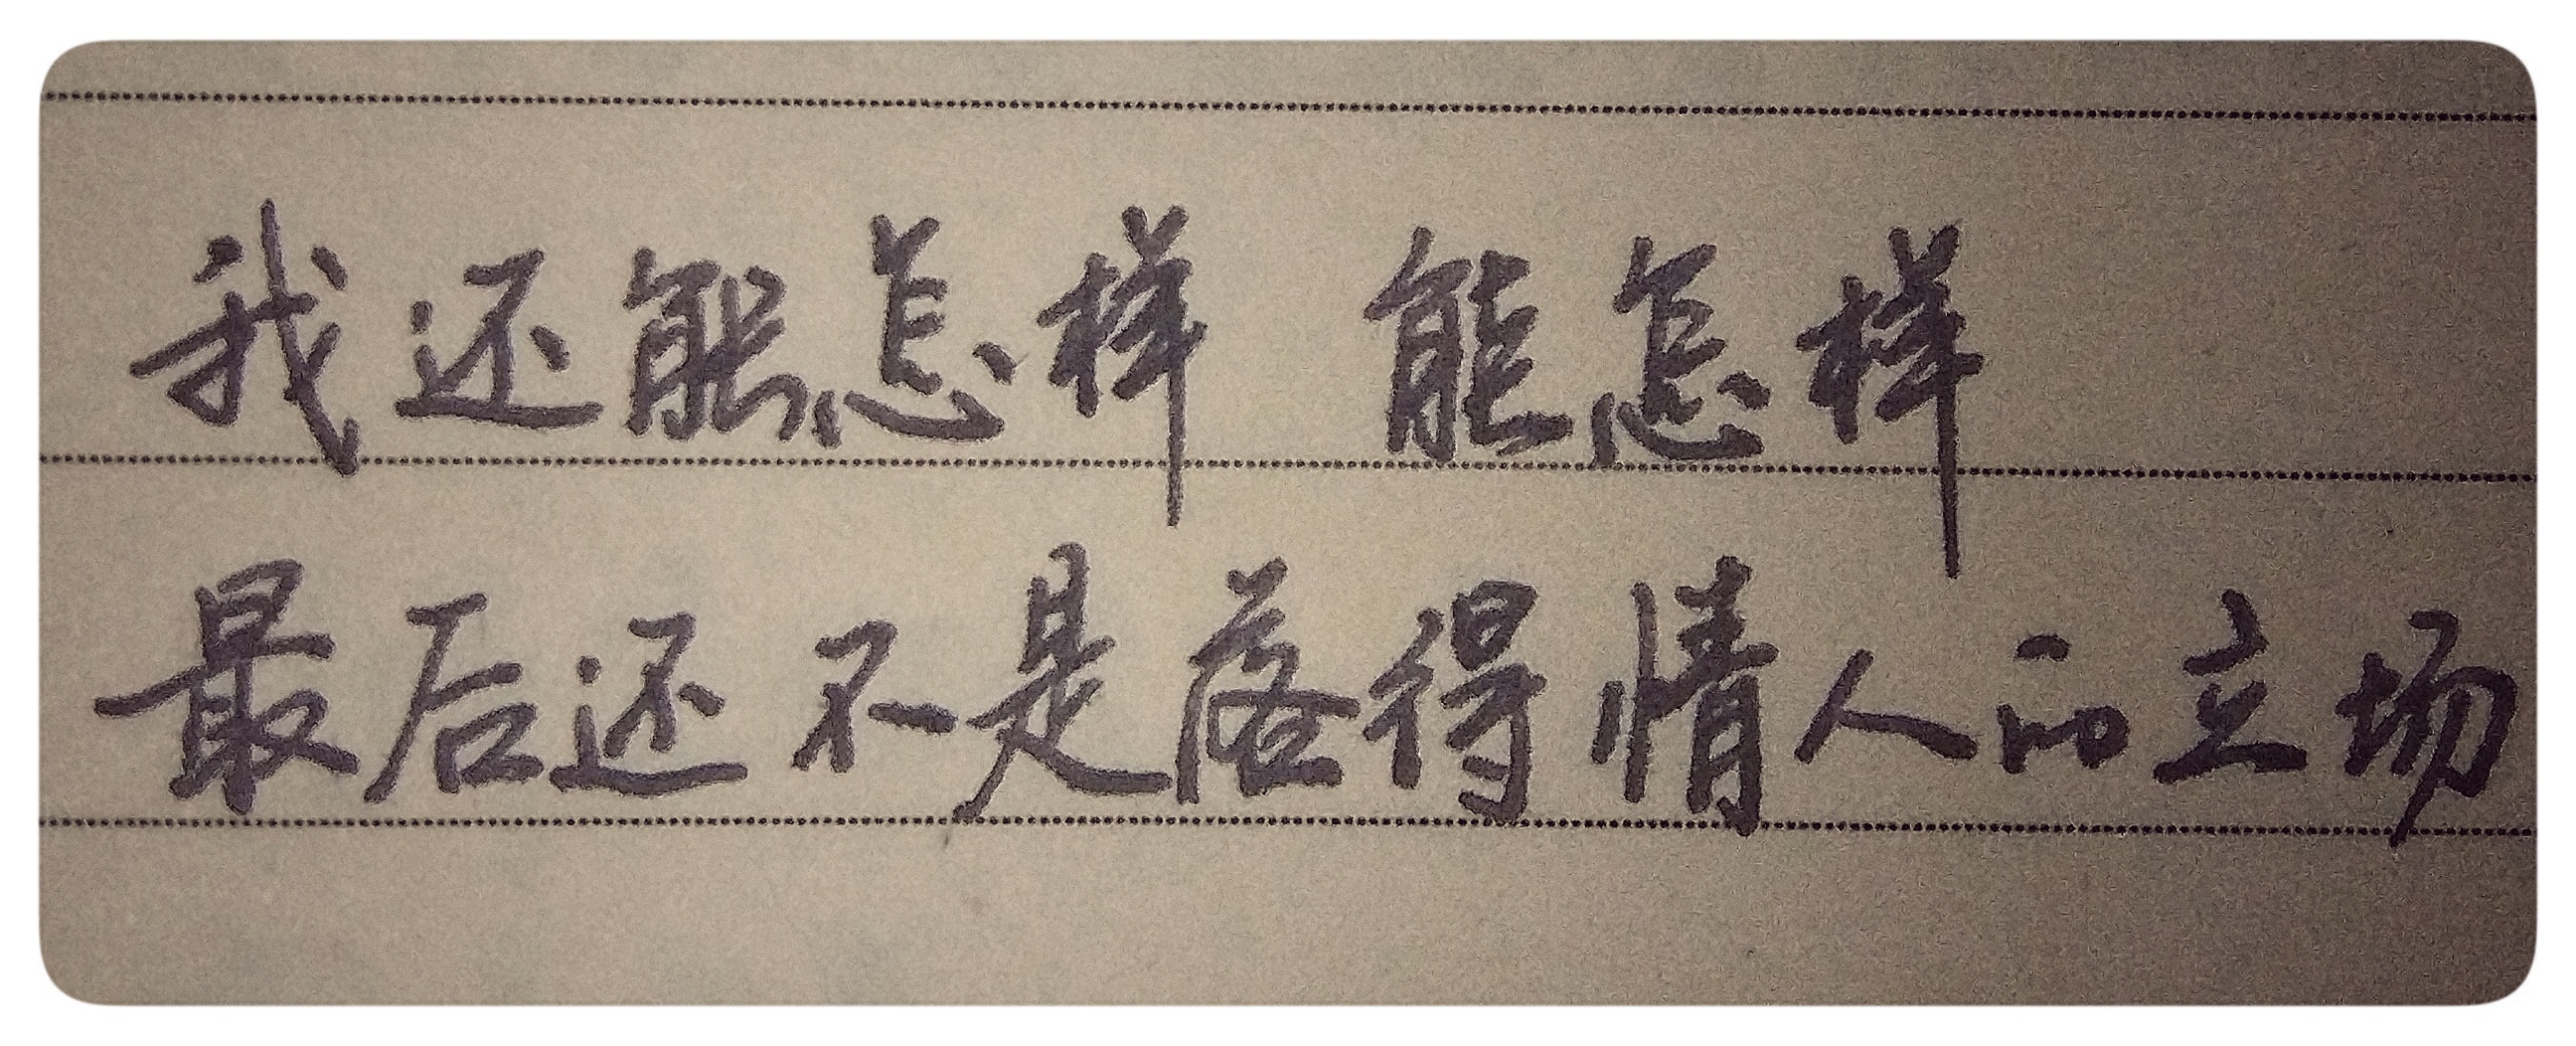 我还能怎样 能怎样
最后还不是落得情人的立场